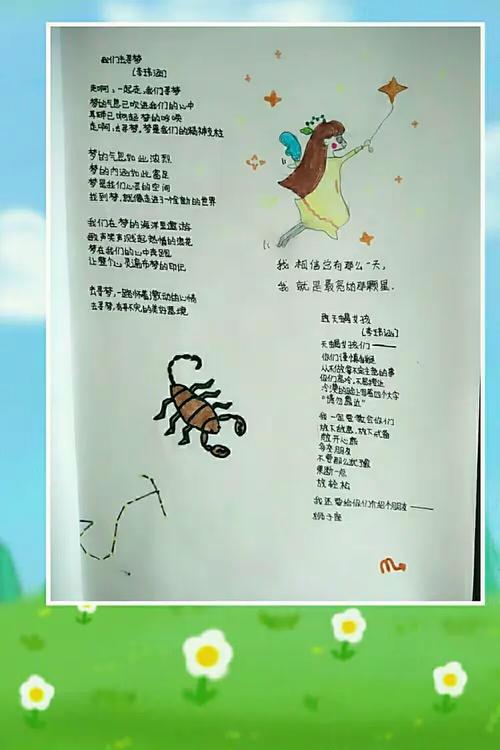 我们去寻梦
(李玮涵)
走啊，一起走，我们寻梦
梦的气息已吹进我们的心中
耳畔已响起梦的呼唤
走啊，去寻梦，梦是我们的精神支柱
梦的气息如此浓烈
梦的内涵如此富足
梦是我们心灵的空间
找到梦，就像走进了一个全新的世界
我们在梦的海洋里遨游
歌声笑声溅起热情的浪花
梦在我们的心中奔跑
让整个心灵遍布梦的印记
去寻梦，一路怀着激动的心情
去寻梦，有寻不完的美好意境
我相信总有那么一天，
我就是最亮的那颗星。
致天蝎女孩
(李玮涵)
天蝎女孩们——
你们谨慎
从不做拿不定主意的事
你们高冷，不易接近
冷漠的脸上写着四个大字
“请勿靠近”
我一定要教会你们
放下敌意，放下戒备
敞开心扉
多交朋友
不要那么犹豫
果断一点
放轻松
我还要给你们介绍个朋友——
狮子座